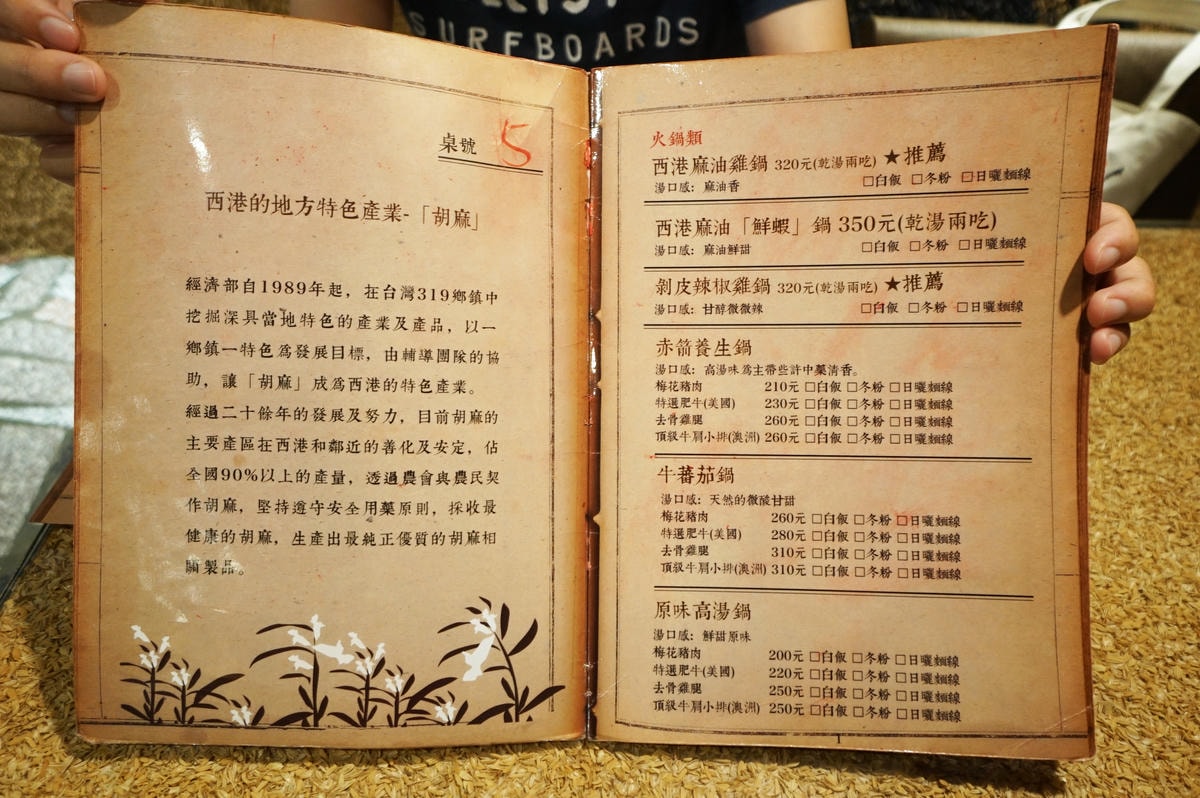 SURFBOARDS
桌號 5
西港的地方特色產業-「胡麻」
經濟部自1989年起，在台灣319鄉鎮中
挖掘深具當地特色的產業及產品，以一
鄉鎮一特色為發展目標，由輔導團隊的協
助，讓「胡麻」成為西港的特色產業。
經過二十餘年的發展及努力，目前胡麻的
主要產區在西港和鄰近的善化及安定，佔
全國90%以上的產量，透過農會與農民契
作胡麻，堅持遵守安全用藥原則，採收最
健康的胡麻，生產出最純正優質的胡麻相
關製品。
火鍋類
西港麻油雞鍋 320元(乾湯兩吃) ★推薦
湯口感：麻油香 □白飯 □冬粉 □日曬麵線
西港麻油「鮮蝦」鍋 350元(乾湯兩吃)
湯口感：麻油鮮甜 □白飯 □冬粉 □日曬麵線
剝皮辣椒雞鍋 320元(乾湯兩吃) ★推薦
湯口感：甘醇微微辣 □白飯 □冬粉 □日曬麵線
赤箭養生鍋
湯口感：高湯味為主帶些許中藥清香。
梅花豬肉 210元 □白飯 □冬粉 □日曬麵線
特選肥牛(美國) 230元 □白飯 □冬粉 □日曬麵線
去骨雞腿 260元 □白飯 □冬粉 □日曬麵線
頂級牛肩小排(澳洲) 260元 □白飯 □冬粉 □日曬麵線
牛蕃茄鍋
湯口感：天然的微酸甘甜
梅花豬肉 260元 □白飯 □冬粉 □日曬麵線
特選肥牛(美國) 280元 □白飯 □冬粉 □日曬麵線
去骨雞腿 310元 □白飯 □冬粉 □日曬麵線
頂級牛肩小排(澳洲) 310元 □白飯 □冬粉 □日曬麵線
原味高湯鍋
湯口感：鮮甜原味
梅花豬肉 200元 □白飯 □冬粉 □日曬麵線
特選肥牛(美國) 220元 □白飯 □冬粉 □日曬麵線
去骨雞腿 250元 □白飯 □冬粉 □日曬麵線
頂級牛肩小排(澳洲) 250元 □白飯 □冬粉 □日曬麵線
1